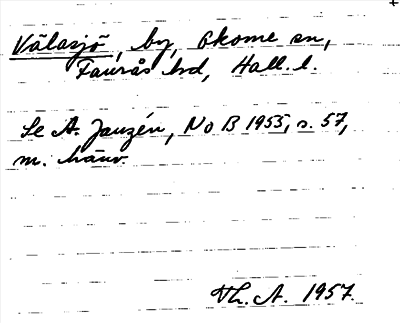 Välasjö, by, Okome sn,
Faurås hd, Hall. l.
Se A. Janzén, NoB 1955, s. 57,
m. hänv.
Th. A. 1957.